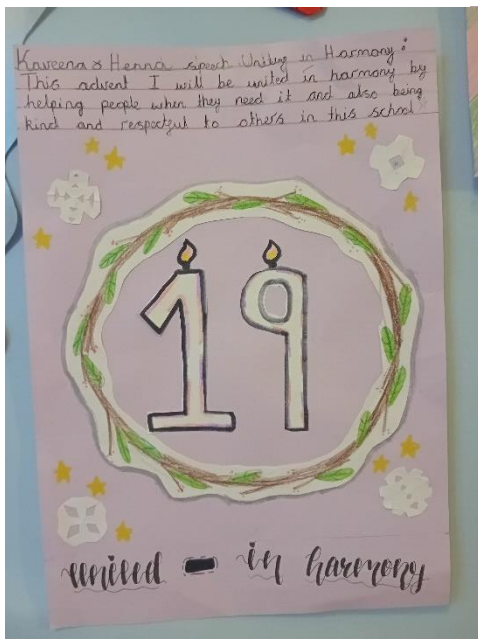 Kaveena & Henna speech Uniting in Harmony:
This advent I will be united in harmony by
helping people when they need it and also being
kind and respectful to others in this school
19
united - in harmony